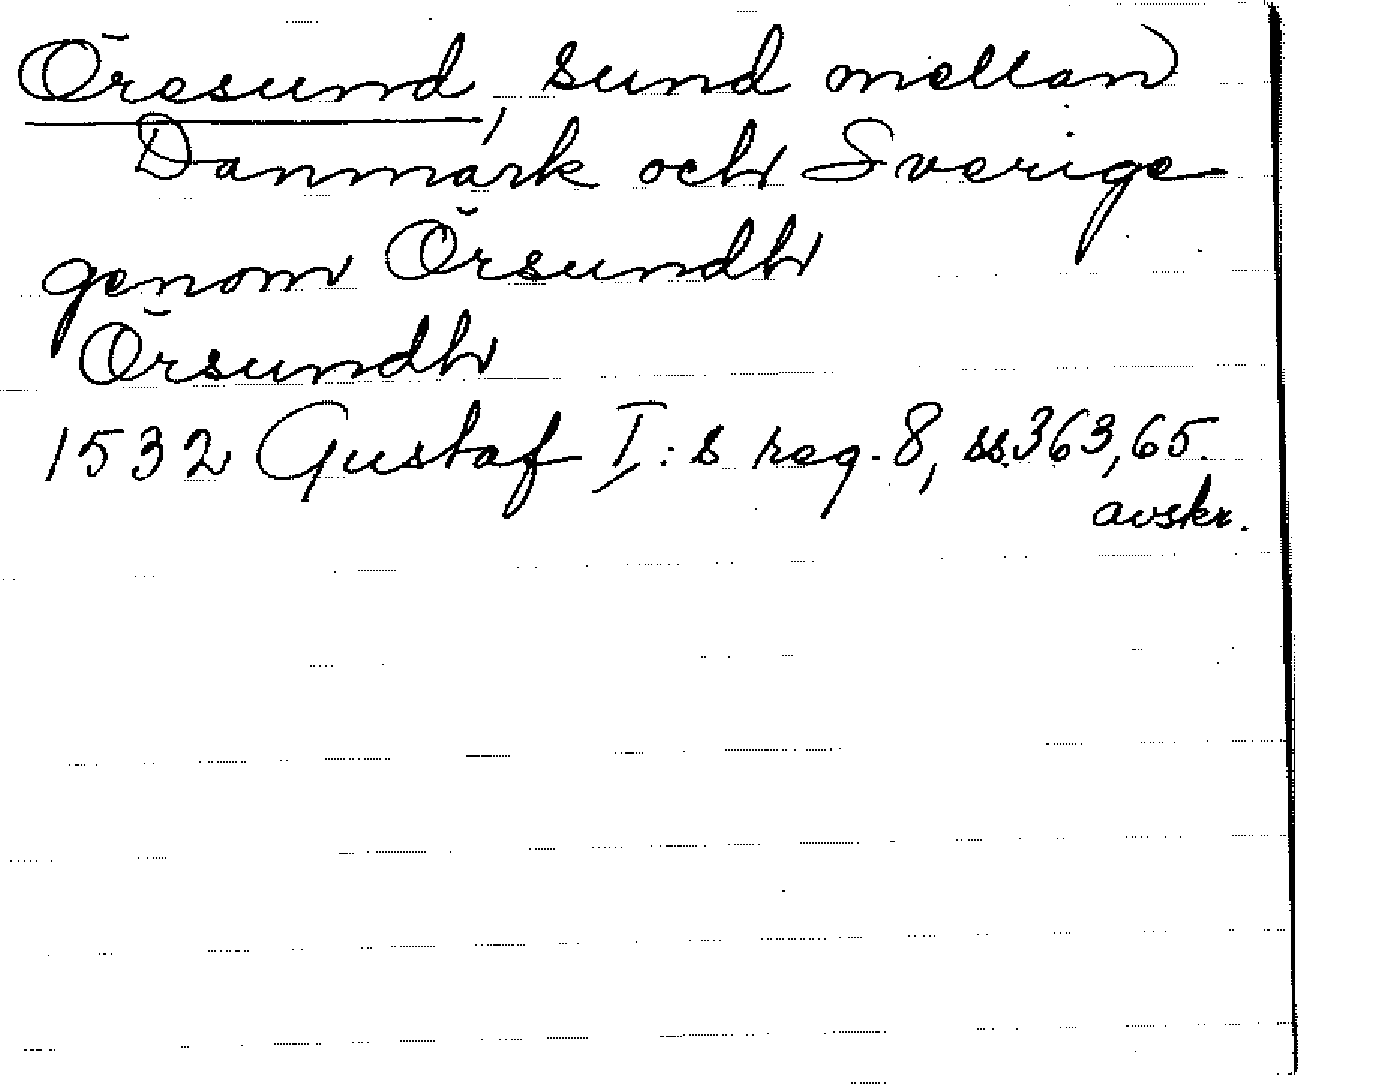 Öresund, sund mellan
Danmark och Sverige
genom Örsundh
Örsundh
1532 Gustaf I:s reg. 8, ss 363, 65.
avskr.